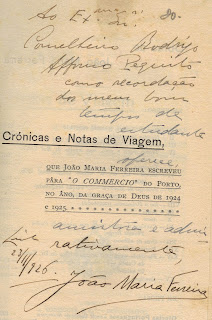 Ao Ex.mo Sr. 80-
Conselheiro Rodrigo
Affonso Pequito
como recordação
dos meus bons
tempos de
estudante
Crónicas e Notas de Viagem,
offerece,
QUE JOÃO MARIA FERREIRA ESCREVEU
PÁRA "O COMMERCIO" DO PORTO,
NO ÂNO, DA GRAÇA DE DEUS DE 1924
E 1925
admirativamente
23/11/926.
João Maria Ferreira